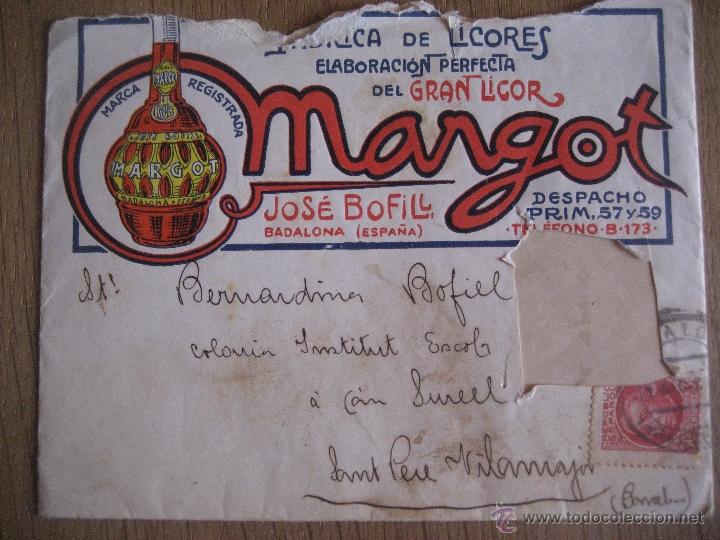 FABRICA DE LICORES
ELABORACIÓN PERFECTA
DEL GRAN LICOR
Margot
MARCA REGISTRADA
MARGOT
JOSÉ BOFILL
BADALONA (ESPAÑA)
DESPACHO
PRIM, 57 y 59
·TELÉFONO·B·173·
Bernardina Bofill
colonia Institut Escola
à Can Surell
Sant Pere Vilamajor
REPUBLICA
ESPAÑOLA
todocoleccion
www.todocoleccion.net